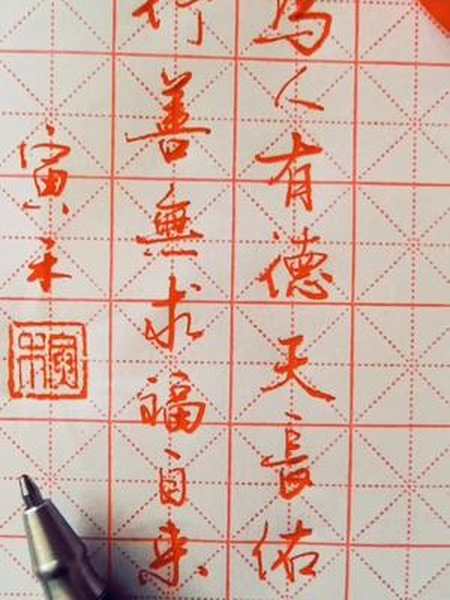 為人有德天長佑
行善無求福自来
寅禾